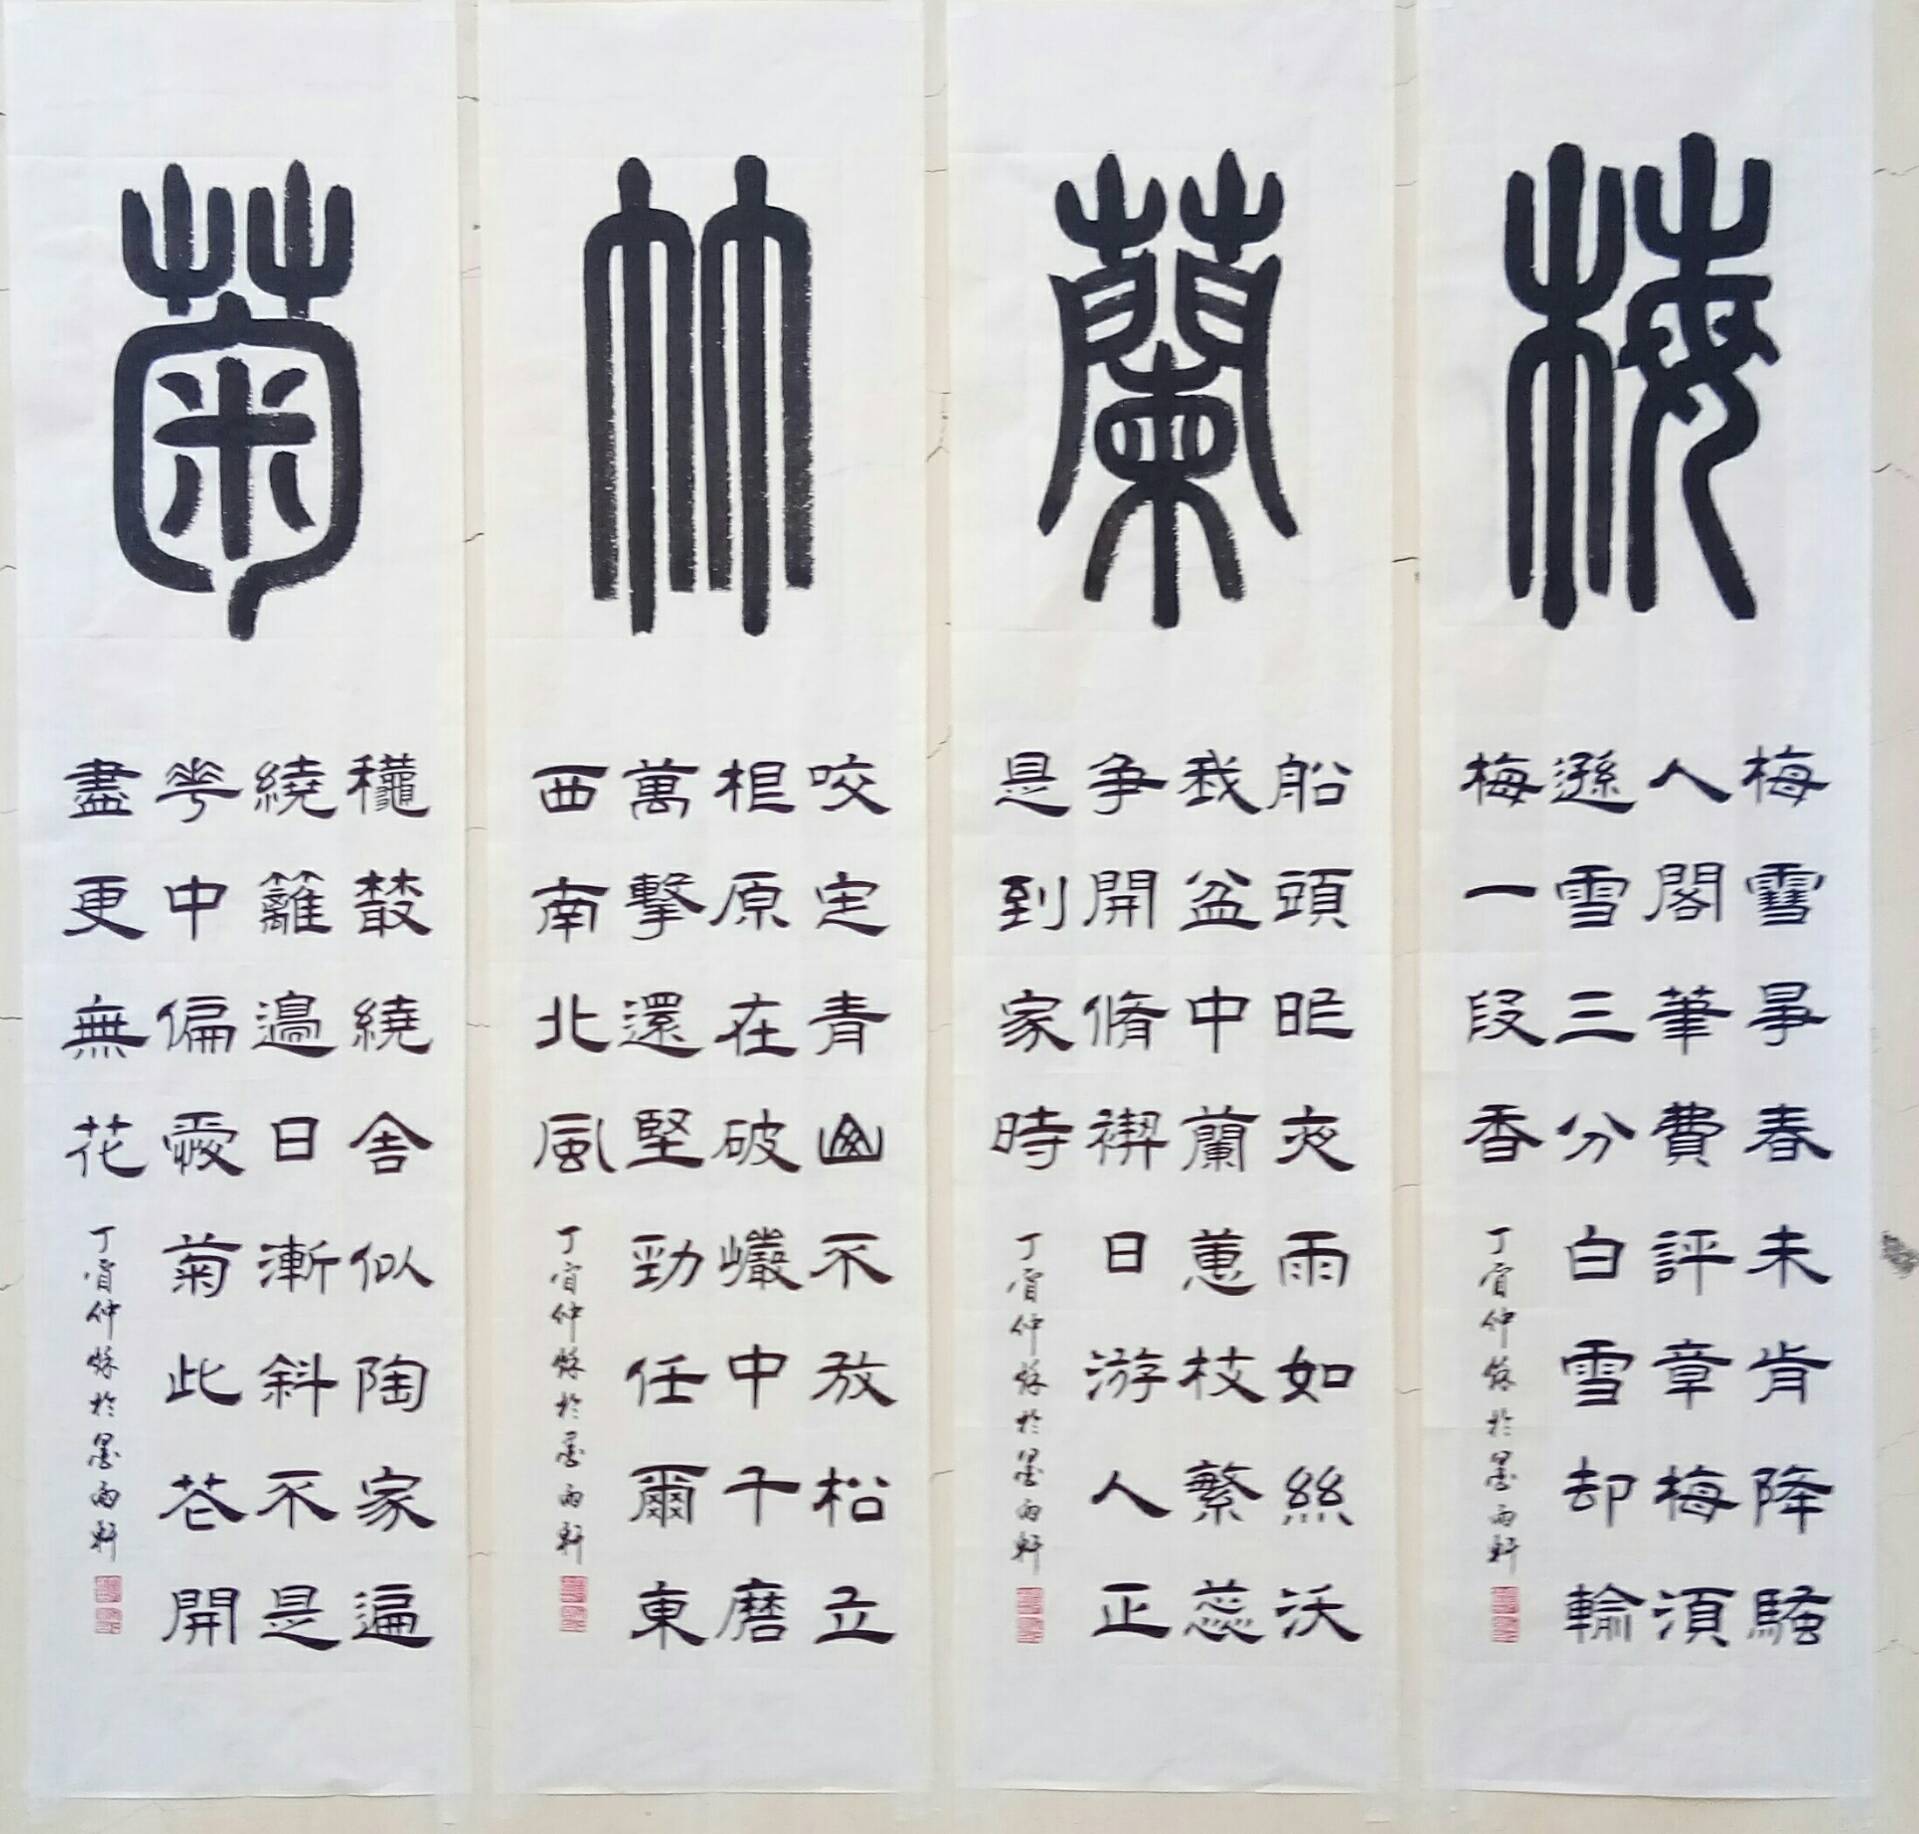 梅
梅雪爭春未肯降騷
人閣筆費評章梅須
遜雪三分白雪却輸
梅一段香
丁酉仲秋於墨雨軒
蘭
船頭昨夜雨如絲沃
我盆中蘭蕙枝繁蕊
争開脩禊日游人正
是到家時
丁酉仲秋於墨雨軒
竹
咬定青山不放松立
根原在破巖中千磨
萬擊還堅勁任爾東
西南北風
丁酉仲秋於墨雨軒
菊
龝叢繞舍似陶家遍
繞籬邊日漸斜不是
花中偏愛菊此花開
盡更無花
丁酉仲秋於墨雨軒